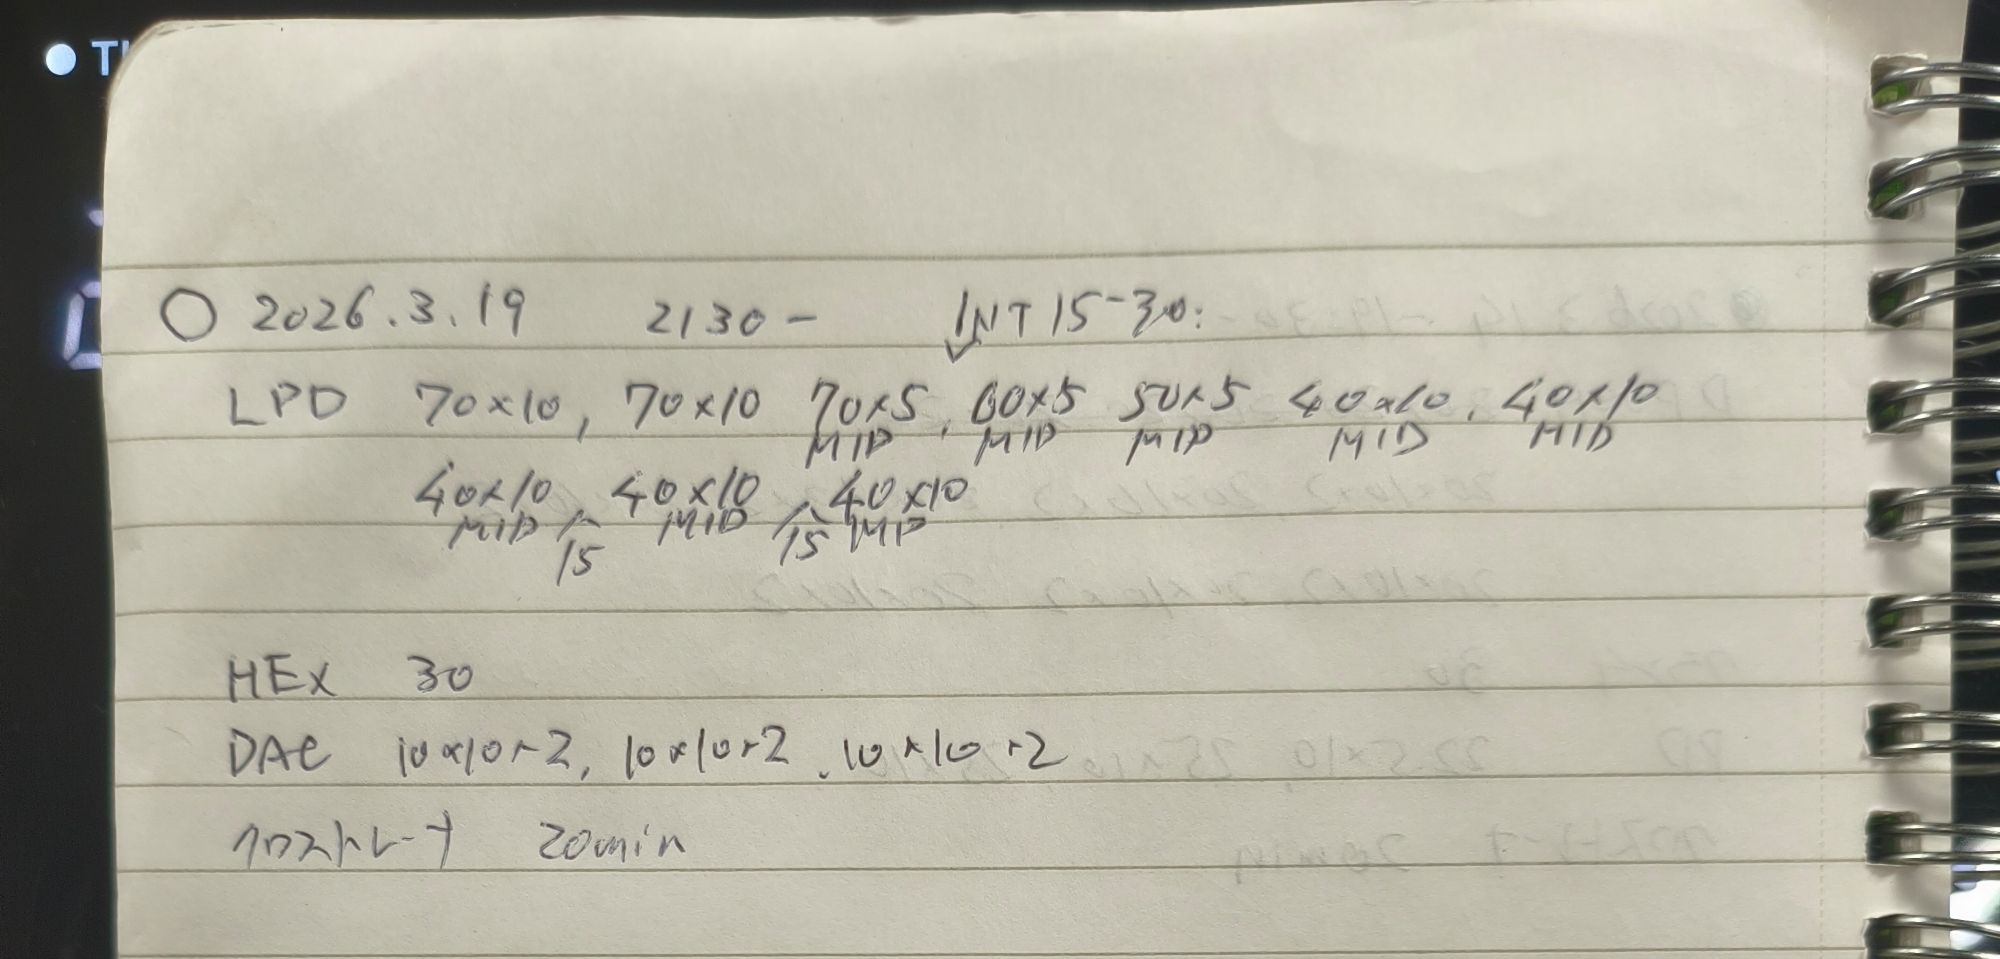 TI
○ 2026.3.19 2130- INT 15-30:
LPD 70×10, 70×10 70×5, 60×5 50×5 40×10, 40×10
MID MID MID MID MID
40×10 40×10 40×10
MID 15 MID 15 MID
HEX 30
DAC 10×10×2, 10×10×2, 10×10×2
クロストレーナ 20min